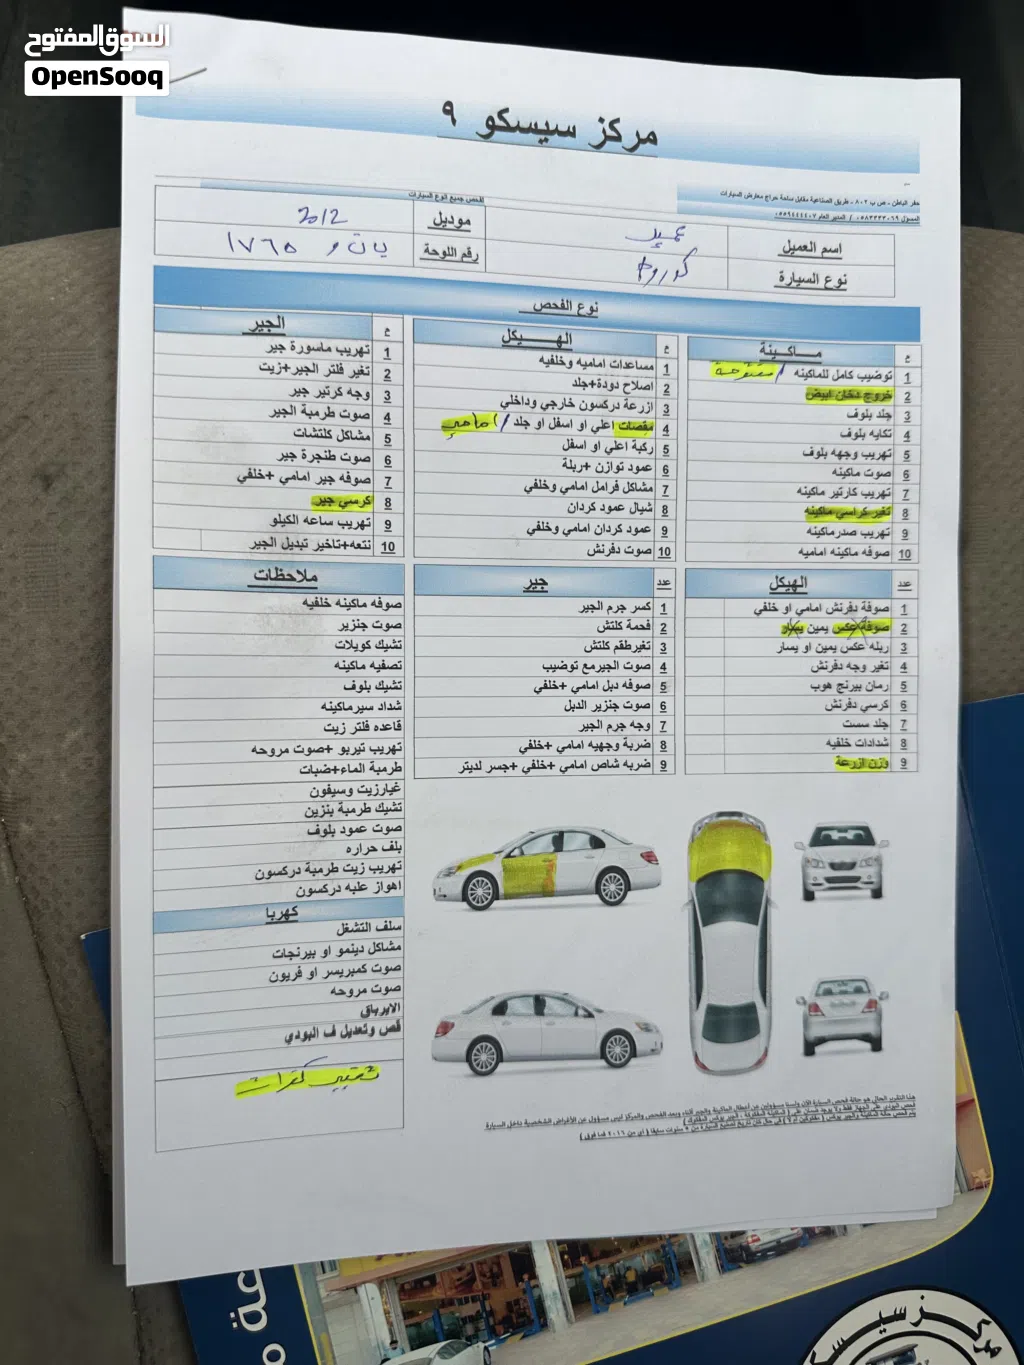 السوق المفتوح
OpenSooq
مركز سيسكو ٩
حفر الباطن - ص ب ٨٠٢ - طريق الصناعية مقابل ساحة حراج معارض السيارات
لفحص جميع انوع السيارات
اسم العميل عميل
موديل 2012
نوع السيارة كورولا
رقم اللوحة ١٧٦٥
نوع الفحص
م ماكينة
1 توضيب كامل للماكينه / مفتوحة
2 خروج دخان ابيض
3 جلد بلوف
4 تكايه بلوف
5 تهريب وجهه بلوف
6 صوت ماكينه
7 تهريب كارتير ماكينه
8 تغير كراسي ماكينه
9 تهريب صدرماكينه
10 صوفه ماكينه اماميه
م الهيكل
1 مساعدات اماميه وخلفيه
2 اصلاح دودة+جلد
3 ازرعة دركسون خارجي وداخلي
4 مقصات اعلي او اسفل او جلد / امامي
5 ركبة اعلي او اسفل
6 عمود توازن +ربلة
7 مشاكل فرامل امامي وخلفي
8 شيال عمود كردان
9 عمود كردان امامي وخلفي
10 صوت دفرنش
م الجير
1 تهريب ماسورة جير
2 تغير فلتر الجير+زيت
3 وجه كرتير جير
4 صوت طرمبة الجير
5 مشاكل كلتشات
6 صوت طنجرة جير
7 صوفه جير امامي +خلفي
8 كرسي جير
9 تهريب ساعه الكيلو
10 نتعه+تاخير تبديل الجير
عدد الهيكل
1 صوفة دفرنش امامي او خلفي
2 صوفة عكس يمين يسار
3 ربله عكس يمين او يسار
4 تغير وجه دفرنش
5 رمان بيرنج هوب
6 كرسي دفرنش
7 جلد سست
8 شدادات خلفيه
9 وزن ازرعة
عدد جير
1 كسر جرم الجير
2 فحمة كلتش
3 تغيرطقم كلتش
4 صوت الجيرمع توضيب
5 صوفه دبل امامي +خلفي
6 صوت جنزير الدبل
7 وجه جرم الجير
8 ضربة وجهيه امامي +خلفي
9 ضربه شاص امامي +خلفي +جسر لديتر
ملاحظات
صوفه ماكينه خلفيه
صوت جنزير
تشيك كويلات
تصفيه ماكينه
تشيك بلوف
شداد سيرماكينه
قاعده فلتر زيت
تهريب تيربو +صوت مروحه
طرمبة الماء+ضبات
غيارزيت وسيفون
تشيك طرمبة بنزين
صوت عمود بلوف
بلف حراره
تهريب زيت طرمبة دركسون
اهواز علبه دركسون
كهربا
سلف التشغل
مشاكل دينمو او بيرنجات
صوت كمبريسر او فريون
صوت مروحه
الايرباق
قص وتعديل ف البودي
تغيير كفرات
مركز سيسكو